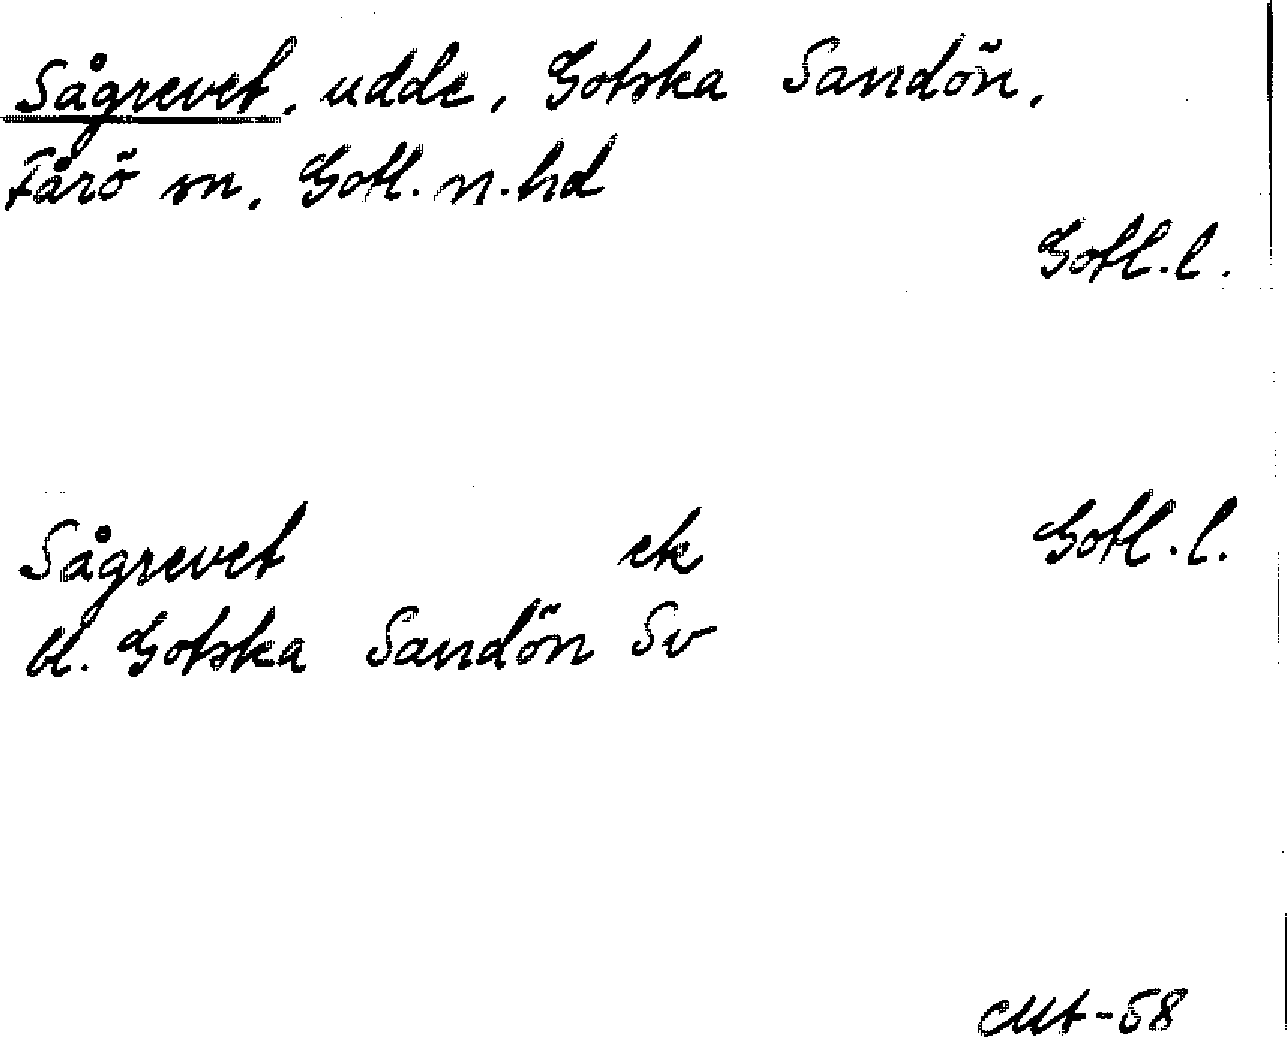 Sågrevet, udde, Gotska Sandön,
Fårö sn, Gotl. n. hd
Gotl. l.
Sågrevet ek Gotl. l.
bl. Gotska Sandön Sv
-58